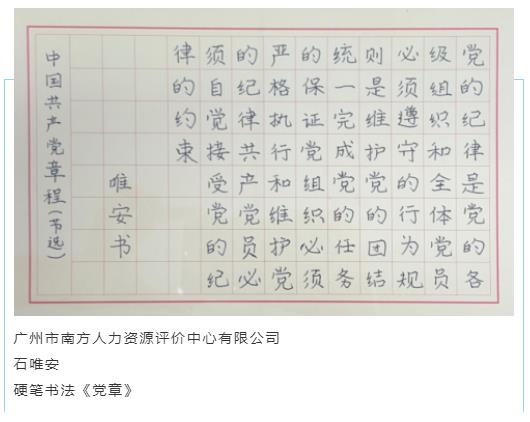 党的纪律是党的各
级组织和全体党员
必须遵守的行为规
则是维护党的团结
统一完成党的任务
的保证党组织必须
严格执行和维护党
的纪律共产党员必
须自觉接受党的纪
律的约束
唯安书
中国共产党章程(节选)
广州市南方人力资源评价中心有限公司
石唯安
硬笔书法《党章》